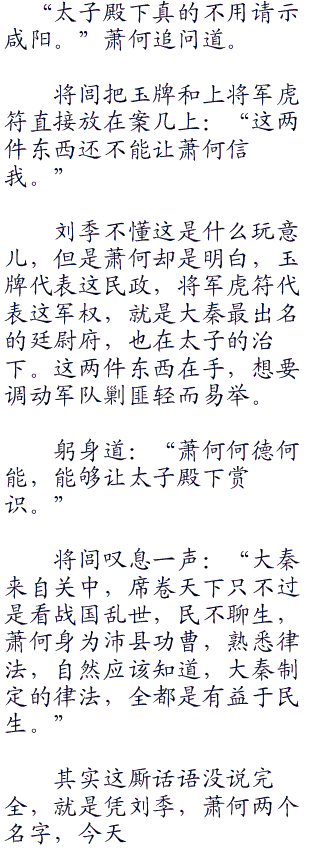 “太子殿下真的不用请示
咸阳。”萧何追问道。
将闾把玉牌和上将军虎
符直接放在案几上：“这两
件东西还不能让萧何信
我。”
刘季不懂这是什么玩意
儿，但是萧何却是明白，玉
牌代表这民政，将军虎符代
表这军权，就是大秦最出名
的廷尉府，也在太子的治
下。这两件东西在手，想要
调动军队剿匪轻而易举。
躬身道：“萧何何德何
能，能够让太子殿下赏
识。”
将闾叹息一声：“大秦
来自关中，席卷天下只不过
是看战国乱世，民不聊生，
萧何身为沛县功曹，熟悉律
法，自然应该知道，大秦制
定的律法，全都是有益于民
生。”
其实这厮话语没说完
全，就是凭刘季，萧何两个
名字，今天